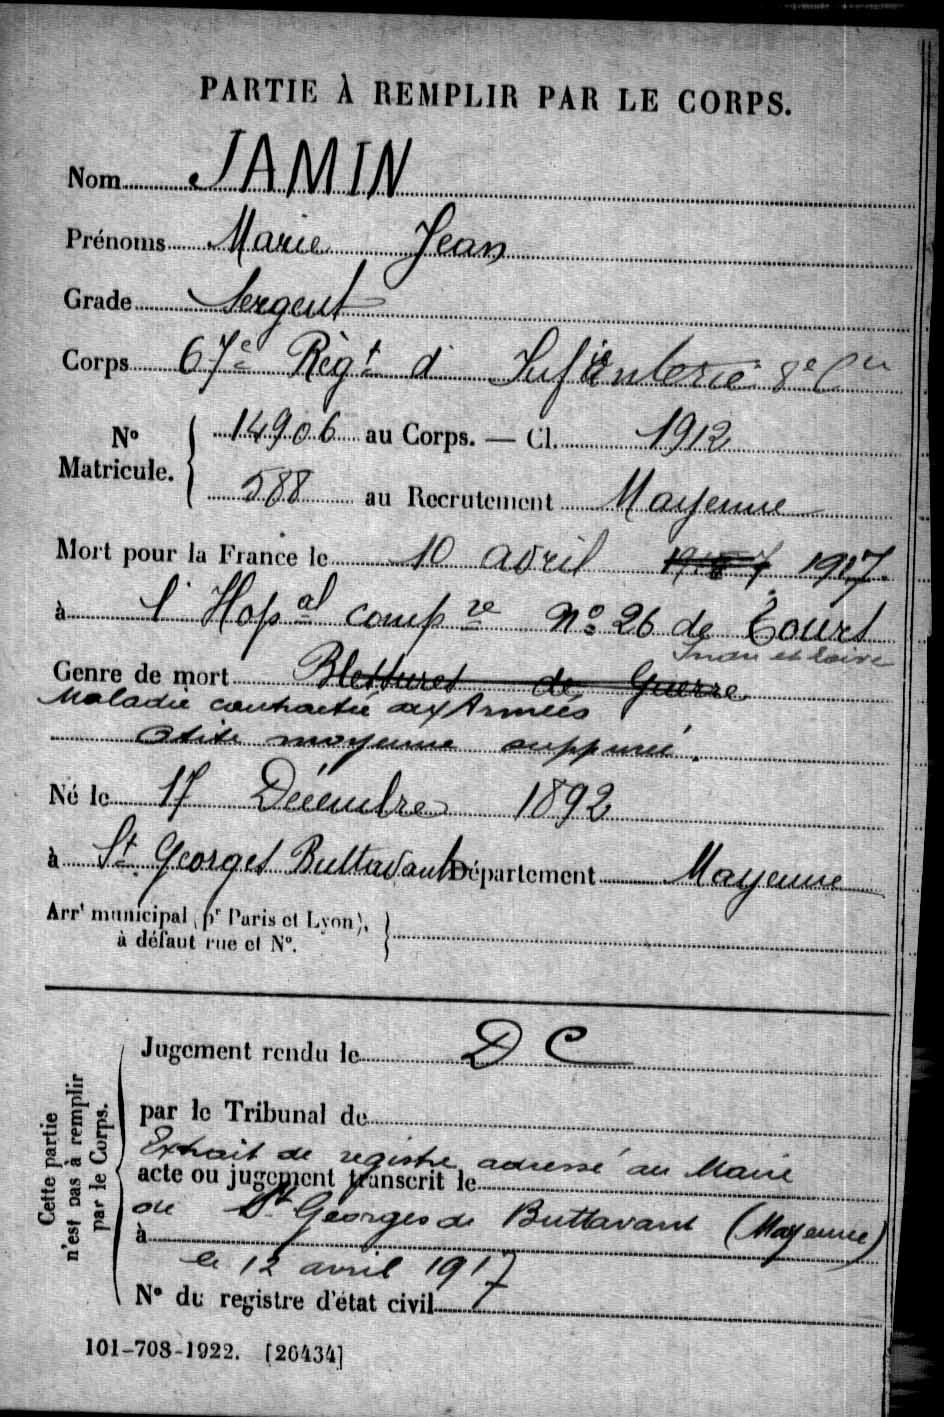 PARTIE À REMPLIR PAR LE CORPS.
Nom JAMIN
Prénoms Marie Jean
Grade Sergent
Corps 67e Règt d' Infanterie 8e Cie
No Matricule. { 14906 au Corps. — Cl. 1912
588 au Recrutement Mayenne
Mort pour la France le 10 avril 1917.
à l'Hopal compre No 26 de Tours
Indre et Loire
Genre de mort Blessures de Guerre
Maladie contractée aux Armées
Otite moyenne suppurée.
Né le 17 Décembre 1892
à St. Georges Buttavant Département Mayenne
Arrt municipal (pr Paris et Lyon),
à défaut rue et No.
Cette partie
n'est pas à remplir
par le Corps.
Jugement rendu le DC
par le Tribunal de
Extrait de registre adressé au Maire
acte ou jugement transcrit le
de St Georges de Buttavant (Mayenne)
à
le 12 avril 1917
No du registre d'état civil
101-708-1922. [26434]